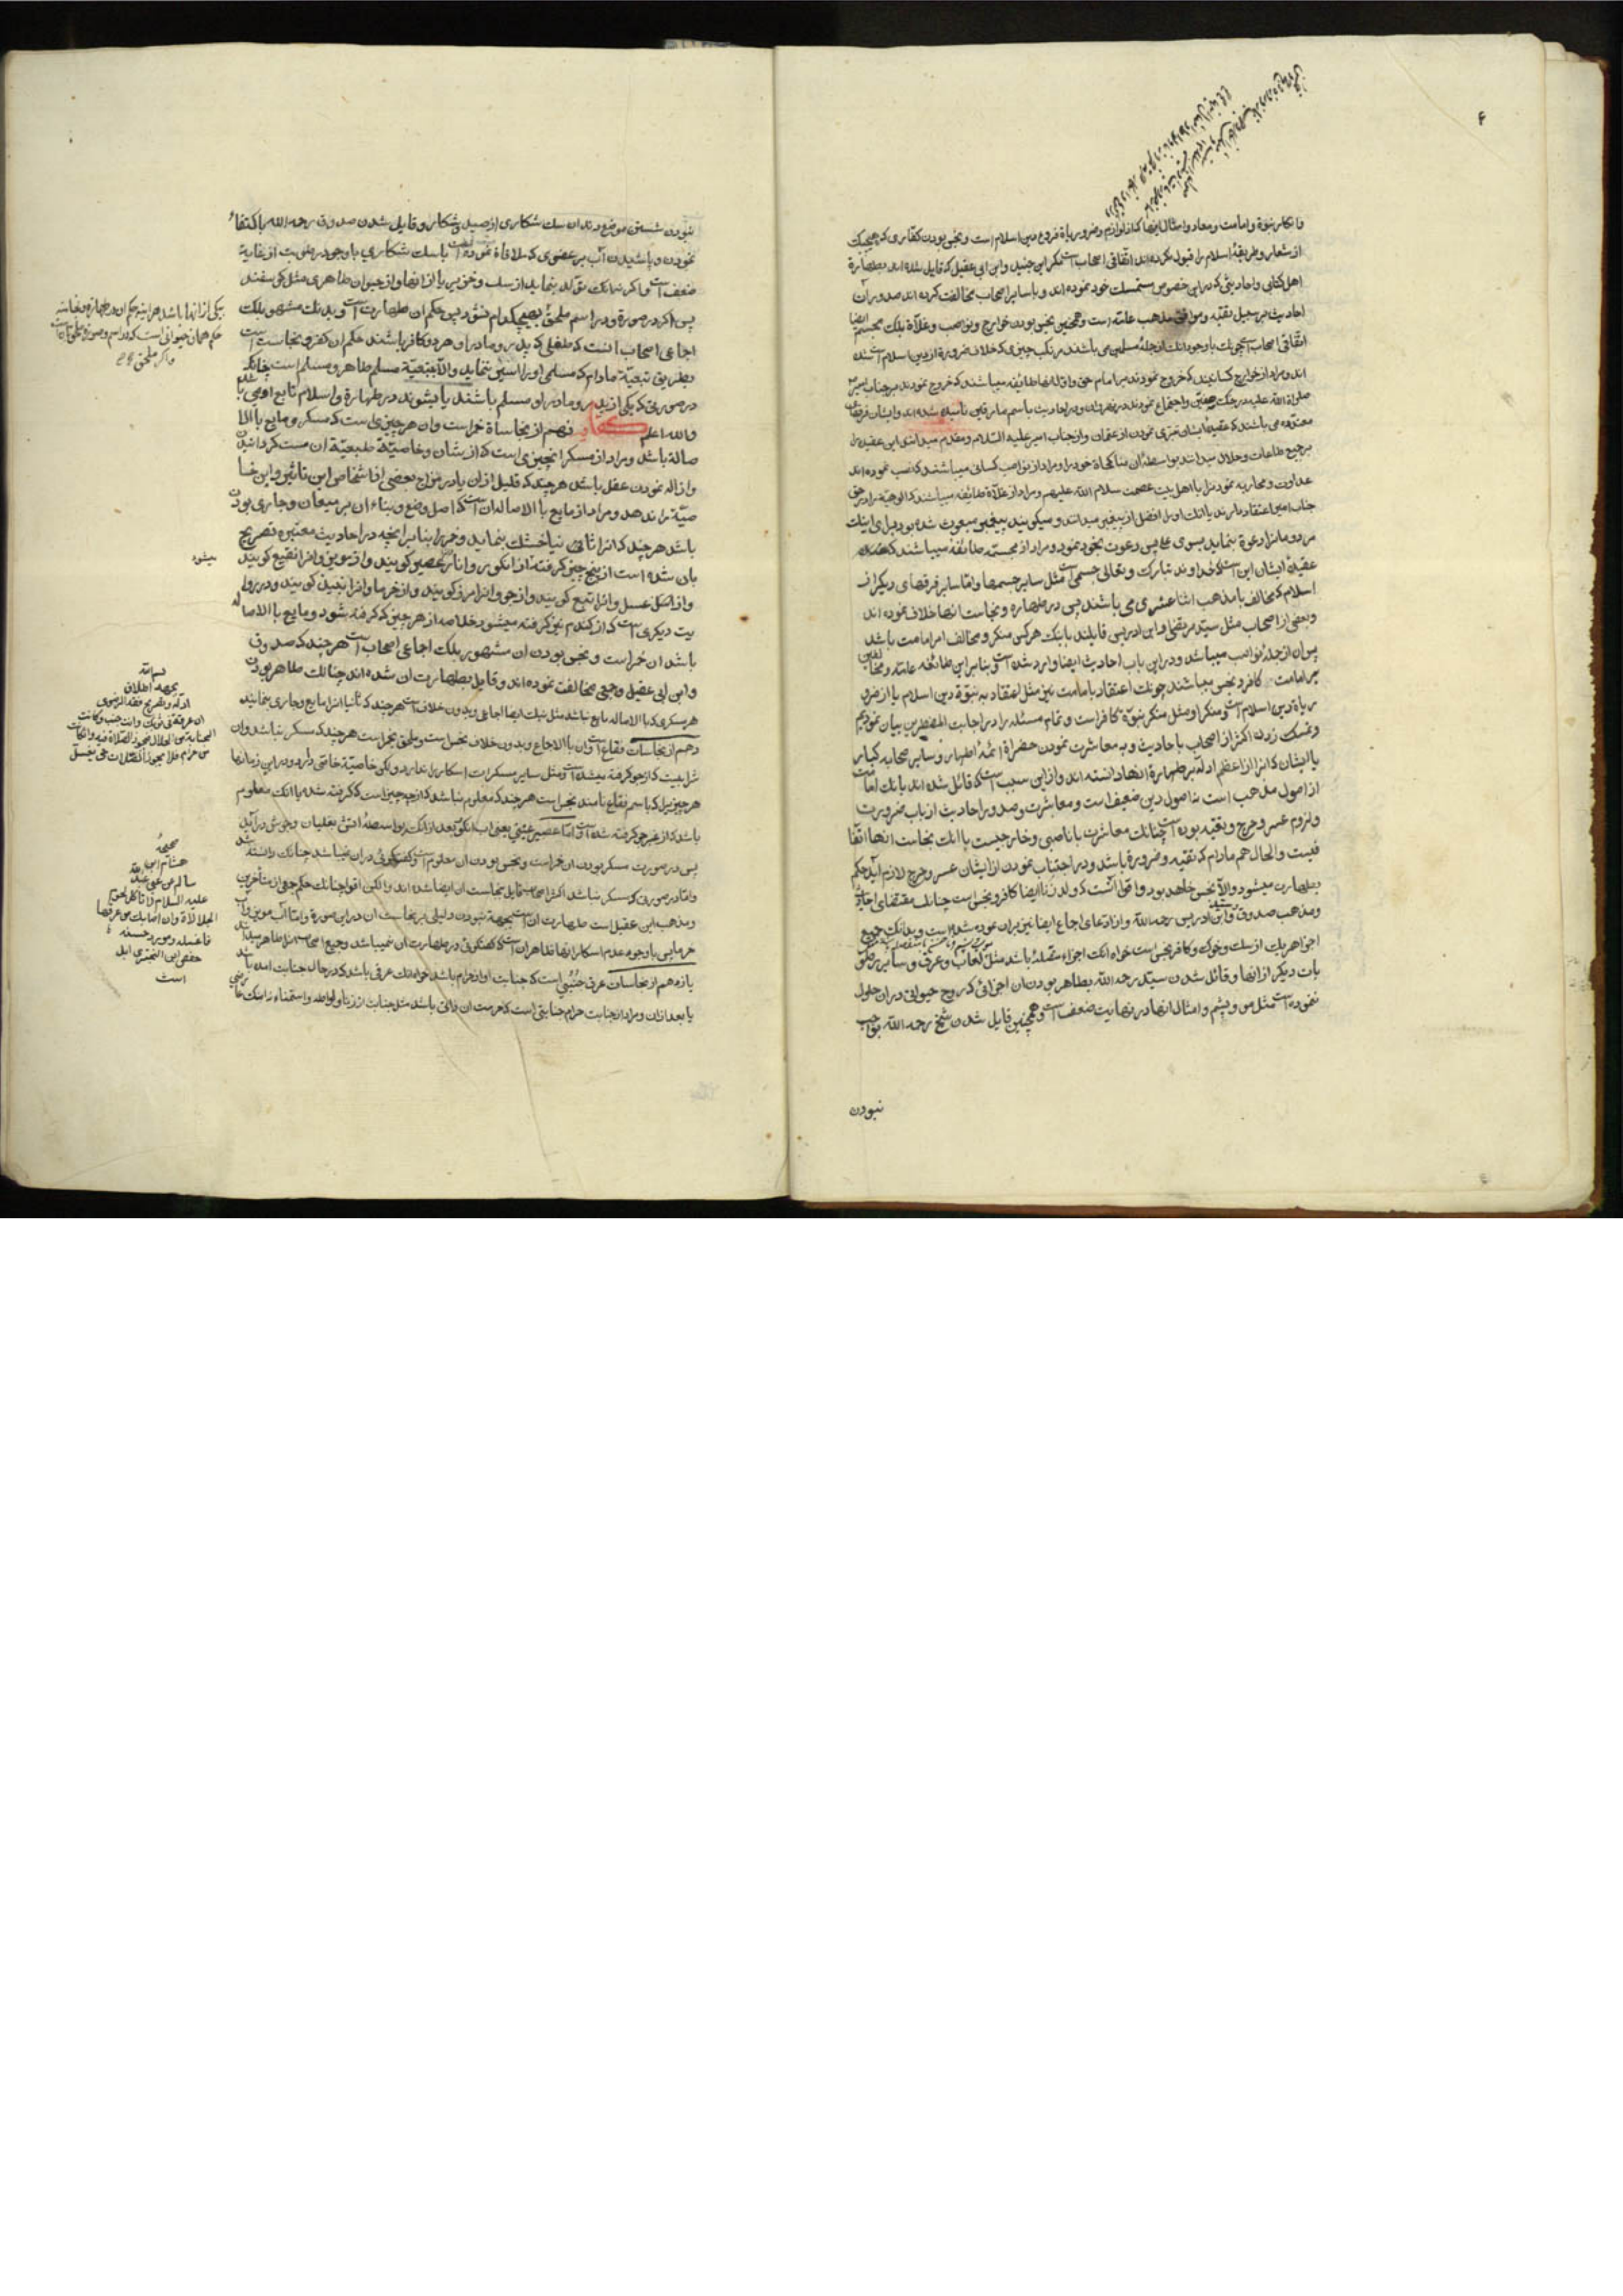 و انکار نبوة و امامت و معاد و امثال اینها که از لوازم و ضروریاة فروع دین اسلام است و نجس بودن کفاری که هیچیک
از شعار و طریقهٔ اسلام را قبول نکرده‌اند اتفاقی اصحاب است مگر ابن جنید و ابن ابی عقیل که قایل شده‌اند بطهارة
اهل کتاب و احادیثی که در این خصوص متمسک خود نموده‌اند و با سایر اصحاب مخالفت کرده‌اند صدور آن
احادیث بر سبیل تقیّه و موافق مذهب عامّه است و همچنین نجس بودن خوارج و نواصب و غلاة بلکه مجسّمه ایضا
اتفاقی اصحاب است چونکه باوجود آنکه از جملهٔ مسلمین می باشند مرتکب چیزی که خلاف ضرورة از دین اسلام است شده
اند و مراد از خوارج کسانیند که خروج نمودند بر امام حق و اوّل آنها طایفه میباشند که خروج نمودند بر جناب امیر
صلواة الله علیه در جنک صفّین و اجتماع نمودند در نهروان و در احادیث باسم مارقین نامیده شده‌اند و ایشان فرقهٔ
می باشند که عقیدهٔ ایشان تبرّی نمودن از عثمان و از جناب امیر علیه السّلام و مقدم میدانند این عقیده را
بر جمیع طاعات و حلال میدانند بواسطهٔ آن مناکحاة خود را و مراد از نواصب کسانی میباشند که نصب نموده‌اند
عداوت و محاربه نمودن را با اهل بیت عصمت سلام الله علیهم و مراد از غلاة طایفه میباشند که الوهیّة را در حق
جناب امیر اعتقاد دارند یا آنکه او را افضل از پیغمبر میدانند و میکویند پیغمبر مبعوث شده بود برای اینکه
مردومان را دعوة بنماید بسوی علی پس دعوت بخود نمود و مراد از مجسّمه طایفه میباشند که
عقیدهٔ ایشان این است که خداوند تبارک و تعالی جسمی است مثل سایر جسمها و امّا سایر فرقهای دیگر از
اسلام که مخالف با مذهب اثنا عشری می باشند پس در طهاره و نجاست آنها خلاف نموده‌اند
و بعضی از اصحاب مثل سیّد مرتضی و ابن ادریس قایلند باینکه هر کس منکر و مخالف امر امامت باشد
پس آن از جملهٔ نواصب میباشد و در این باب احادیث ایضا وارد شده است و بنابر این طائفهٔ عامّه و مخالفین
بر امامت کافر و نجس میباشند چونکه اعتقاد بامامت نیز مثل اعتقاد به نبوّة دین اسلام یا از ضرو
ریاة دین اسلام است و منکر او مثل منکر نبوّة کافر است و تمام مسئله را در اجابت المضطرین بیان نمودیم
و تمسک زدن اکثر از اصحاب باحادیث و به معاشرت نمودن حضراة ائمّهٔ اطهار و سایر صحابهٔ کبار
با ایشان که انرا از اعظم ادلّه بر طهارة آنها دانسته‌اند و از این سبب است که قائل شده‌اند بانکه امامت
از اصول مذهب است نه اصول دین ضعیف است و معاشرت و صدور احادیث از باب ضرورت
و لزوم عسر و حرج و تقیّه بوده است چنانکه معاشرت با ناصبی و خارجیست با آنکه نجاست انها اتّفا
قیست و الحال هم مادام که تقیّه و ضرورة باشد و در اجتناب نمودن از ایشان عسر و حرج لازم آید حکم
بطهارت میشود و الا نجس خواهد بود و اقوا آنست که ولد زنا ایضا کافر و نجس است چنانکه مقتضای اخبار
و مذهب صدوق و سیّد و ابن ادریس رحمه الله و ادعای اجماع ایضا نیز بر آن نموده شده است و بدانکه جمیع
اجزا هر یک از سک و خوک و کافر نجس است خواه انکه اجزاء متصلهٔ باشد مثل لعاب و عرق و سایر رطو
بات دیکر از انها و قائل شدن سیّد رحمه الله بطاهر بودن آن اجزائی که روح حیوانی در آن حلول
ننموده است مثل مو و پشم و امثال انها در نهایت ضعف است و همچنین قایل شدن شیخ رحمه الله بواجب
نبودن
نبودن شستن موضع دندان سک شکاری از صید و شکار و قایل شدن صدوق رحمه الله باکتفاء
نمودن و پاشیدن آب بر عضوی که ملاقاة نموده است باسک شکاری باوجود رطوبت از غایة
ضعف است و اکر توالد بنماید از سک و خنزیر یا از انها و از حیوان طاهری مثل کوسفند
پس اکر در صورة و در اسم ملحق بهیچکدام نشود پس حکم ان طهارت است و بدانکه مشهور بلکه
اجماعی اصحاب انست که طفلی که پدر و مادر او هر دو کافر باشند حکم ان کفر و نجاست است
بطریق تبعیّة مادام که مسلمی او را اسیر ننماید و الا بتبعیّة مسلم طاهر و مسلم است چنانکه
در صورتی که یکی از پدر و مادر او مسلم باشند یا بشوند در طهارة و اسلام تابع اوست
و الله اعلم نهم از نجاساة خمر است و آن هر چیزی است که مسکر و مایع با الا
صالة باشد و مراد از مسکر انچیزی است که از شان و خاصیّة طبیعیّة ان مست کردانیدن
و ازاله نمودن عقل باشد هر چند که قلیل از ان یا در مزاج بعضی از اشخاص این تاثیر و این خا
صیّة را ندهد و مراد از مایع با الاصاله آن است که اصل وضع و بناء ان بر میعان و جاری بودن
باشد هر چند که انرا ثانی خشک بنماید و خمر را بنابر انچه در احادیث معتبره تصریح
بان شده است از پنج چیز کرفته از انکور و انرا عصیر کویند و از مویز و انرا نقیع کویند
و از عسل و انرا بتع کویند و از جو و انرا مزر کویند و از خرما و انرا نبیذ کویند و در روا
یت دیکری است که از کندم نیز کرفته میشود خلاصه از هر چیز که کرفته شود و مایع با الاصاله
باشد ان خمر است و نجس بودن ان مشهور بلکه اجماعی اصحاب است هر چند که صدوق
و ابن ابی عقیل و جعفی مخالفت نموده‌اند و قایل بطهارت ان شده‌اند چنانکه طاهر بودن
هر مسکری که با الاصاله مایع نباشد مثل بنک ایضا اجماعی و بدون خلاف است هر چند که ثانیا انرا مایع و جاری بنمایند
دهم از نجاسات فقاع است و ان با الاجماع و بدون خلاف نجس است و ملحق بخمر است هر چند که مسکر نباشد و ان
شرابیست که از جو کرفته میشده است و مثل سایر مسکرات اسکار را ندارد ولکن خاصیّة خاصی دارد و در این زمانها
هر چیزیرا که باسم فقاع نامند نجس است هر چند که معلوم نباشد که از چه چیز است که کرفته شده یا آنکه معلوم
باشد که از غیر جو کرفته شده است و امّا عصیر عنبی یعنی اب انکور بعد از انکه بواسطهٔ اتش بغلیان و جوش در آید
پس در صورت مسکر بودن ان خمر است و نجس بودن ان معلوم است و کفتکوئی در ان نمیباشد چنانکه دانسته شد
و امّا در صورتی که مسکر نباشد اکثر اصحاب قایل بنجاست ان ایضا شده‌اند و لکن اقوا چنانکه حکم جمعی از متأخرین
و مذهب ابن عقیل است طهارت ان است بجهة نبودن دلیلی بر نجاست ان در این صورة و امّا آب مویز و آب
خرما پس باوجود عدم اسکار انها ظاهر ان است که کفتکوئی در طهارت ان نمیباشد و جمیع اصحاب انرا طاهر میدانند
یازدهم از نجاسات عرق جنبی است که جنابت او از حرام باشد خواه انکه عرقی باشد که در حال جنابت امده باشد
یا بعد از ان و مراد از جنابت حرام جنابتی است که حرمت ان ذاتی باشد مثل جنابت از زنا و لواطه و استمناء نه اینکه
یکی از انها باشد هر اینه حکم او در طهارة و نجاسة
حکم همان حیوانی است که در اسم و صورة ملحق بانست
و اکر ملحق
میشود
بسم الله
بجهة اطلاق
ادلّه و تصریح فقه الرضوی
ان عرقت فی ثوبک و انت جنب و کانت
الجنابة من الحلال فتجوز الصّلاة فیه و ان کانت
من حرام فلا تجوز الصّلاة حتی یغسل
صحیحهٔ
هشام ابن
سالم عن ابی عبد الله
علیه السلام لا تاکل لحوم
الجلالة و ان اصابک من عرقها
فاغسله و مورد حسنهٔ
حفص ابن البختری ابل
است